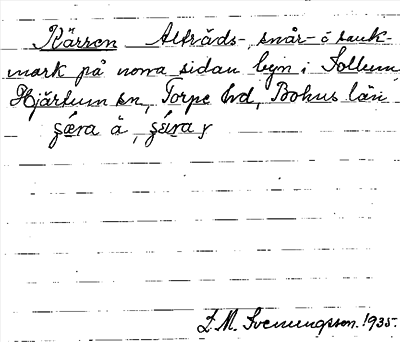 Kärren Alträds-, snår- å sank-
mark på norra sidan byn i Sollum,
Hjärtum sn, Torpe hd, Bohus län
å,
E. M. Svenungsson. 1935.